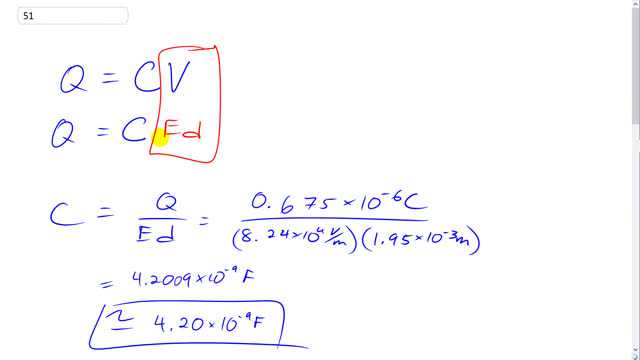 51
Q = CV
Q = C Ed
C = Q/Ed = 0.675×10⁻⁶C/(8.24×10⁴V/m)(1.95×10⁻³m)
= 4.2009×10⁻⁹F
≃ 4.20×10⁻⁹F